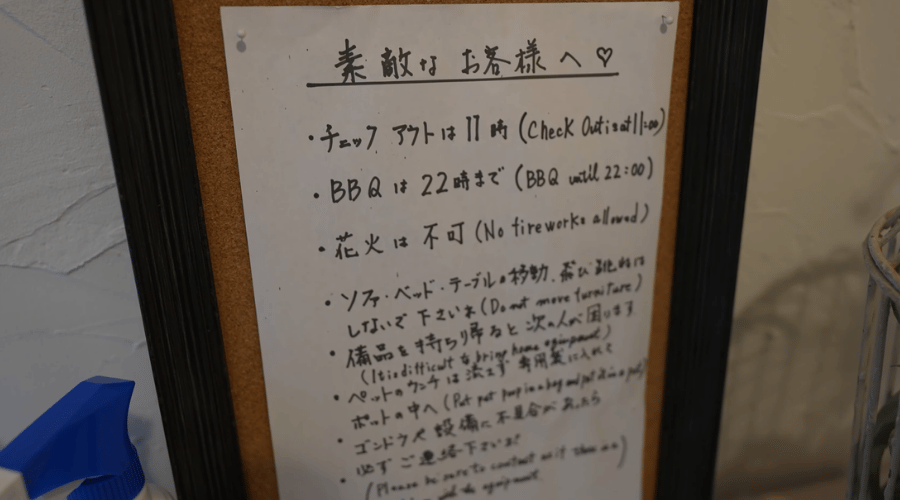 素敵な お客様へ♡
・チェックアウトは11時 (Check Out is at 11:00)
・BBQは22時まで (BBQ until 22:00)
・花火は不可 (No fireworks allowed)
・ソファ・ベッド・テーブルの移動、飛び跳ねは
しないで下さいね (Do not move furniture)
・備品を持ち帰ると次の人が困ります
(It is difficult to bring home equipment)
・ペットのウンチは 専用袋に入れて
ポットの中へ (Put pet poop in a bag and put it in a
・ 設備に不具合があったら
必ずご連絡下さいね
(Please be sure to contact us if there is a
the equipment.